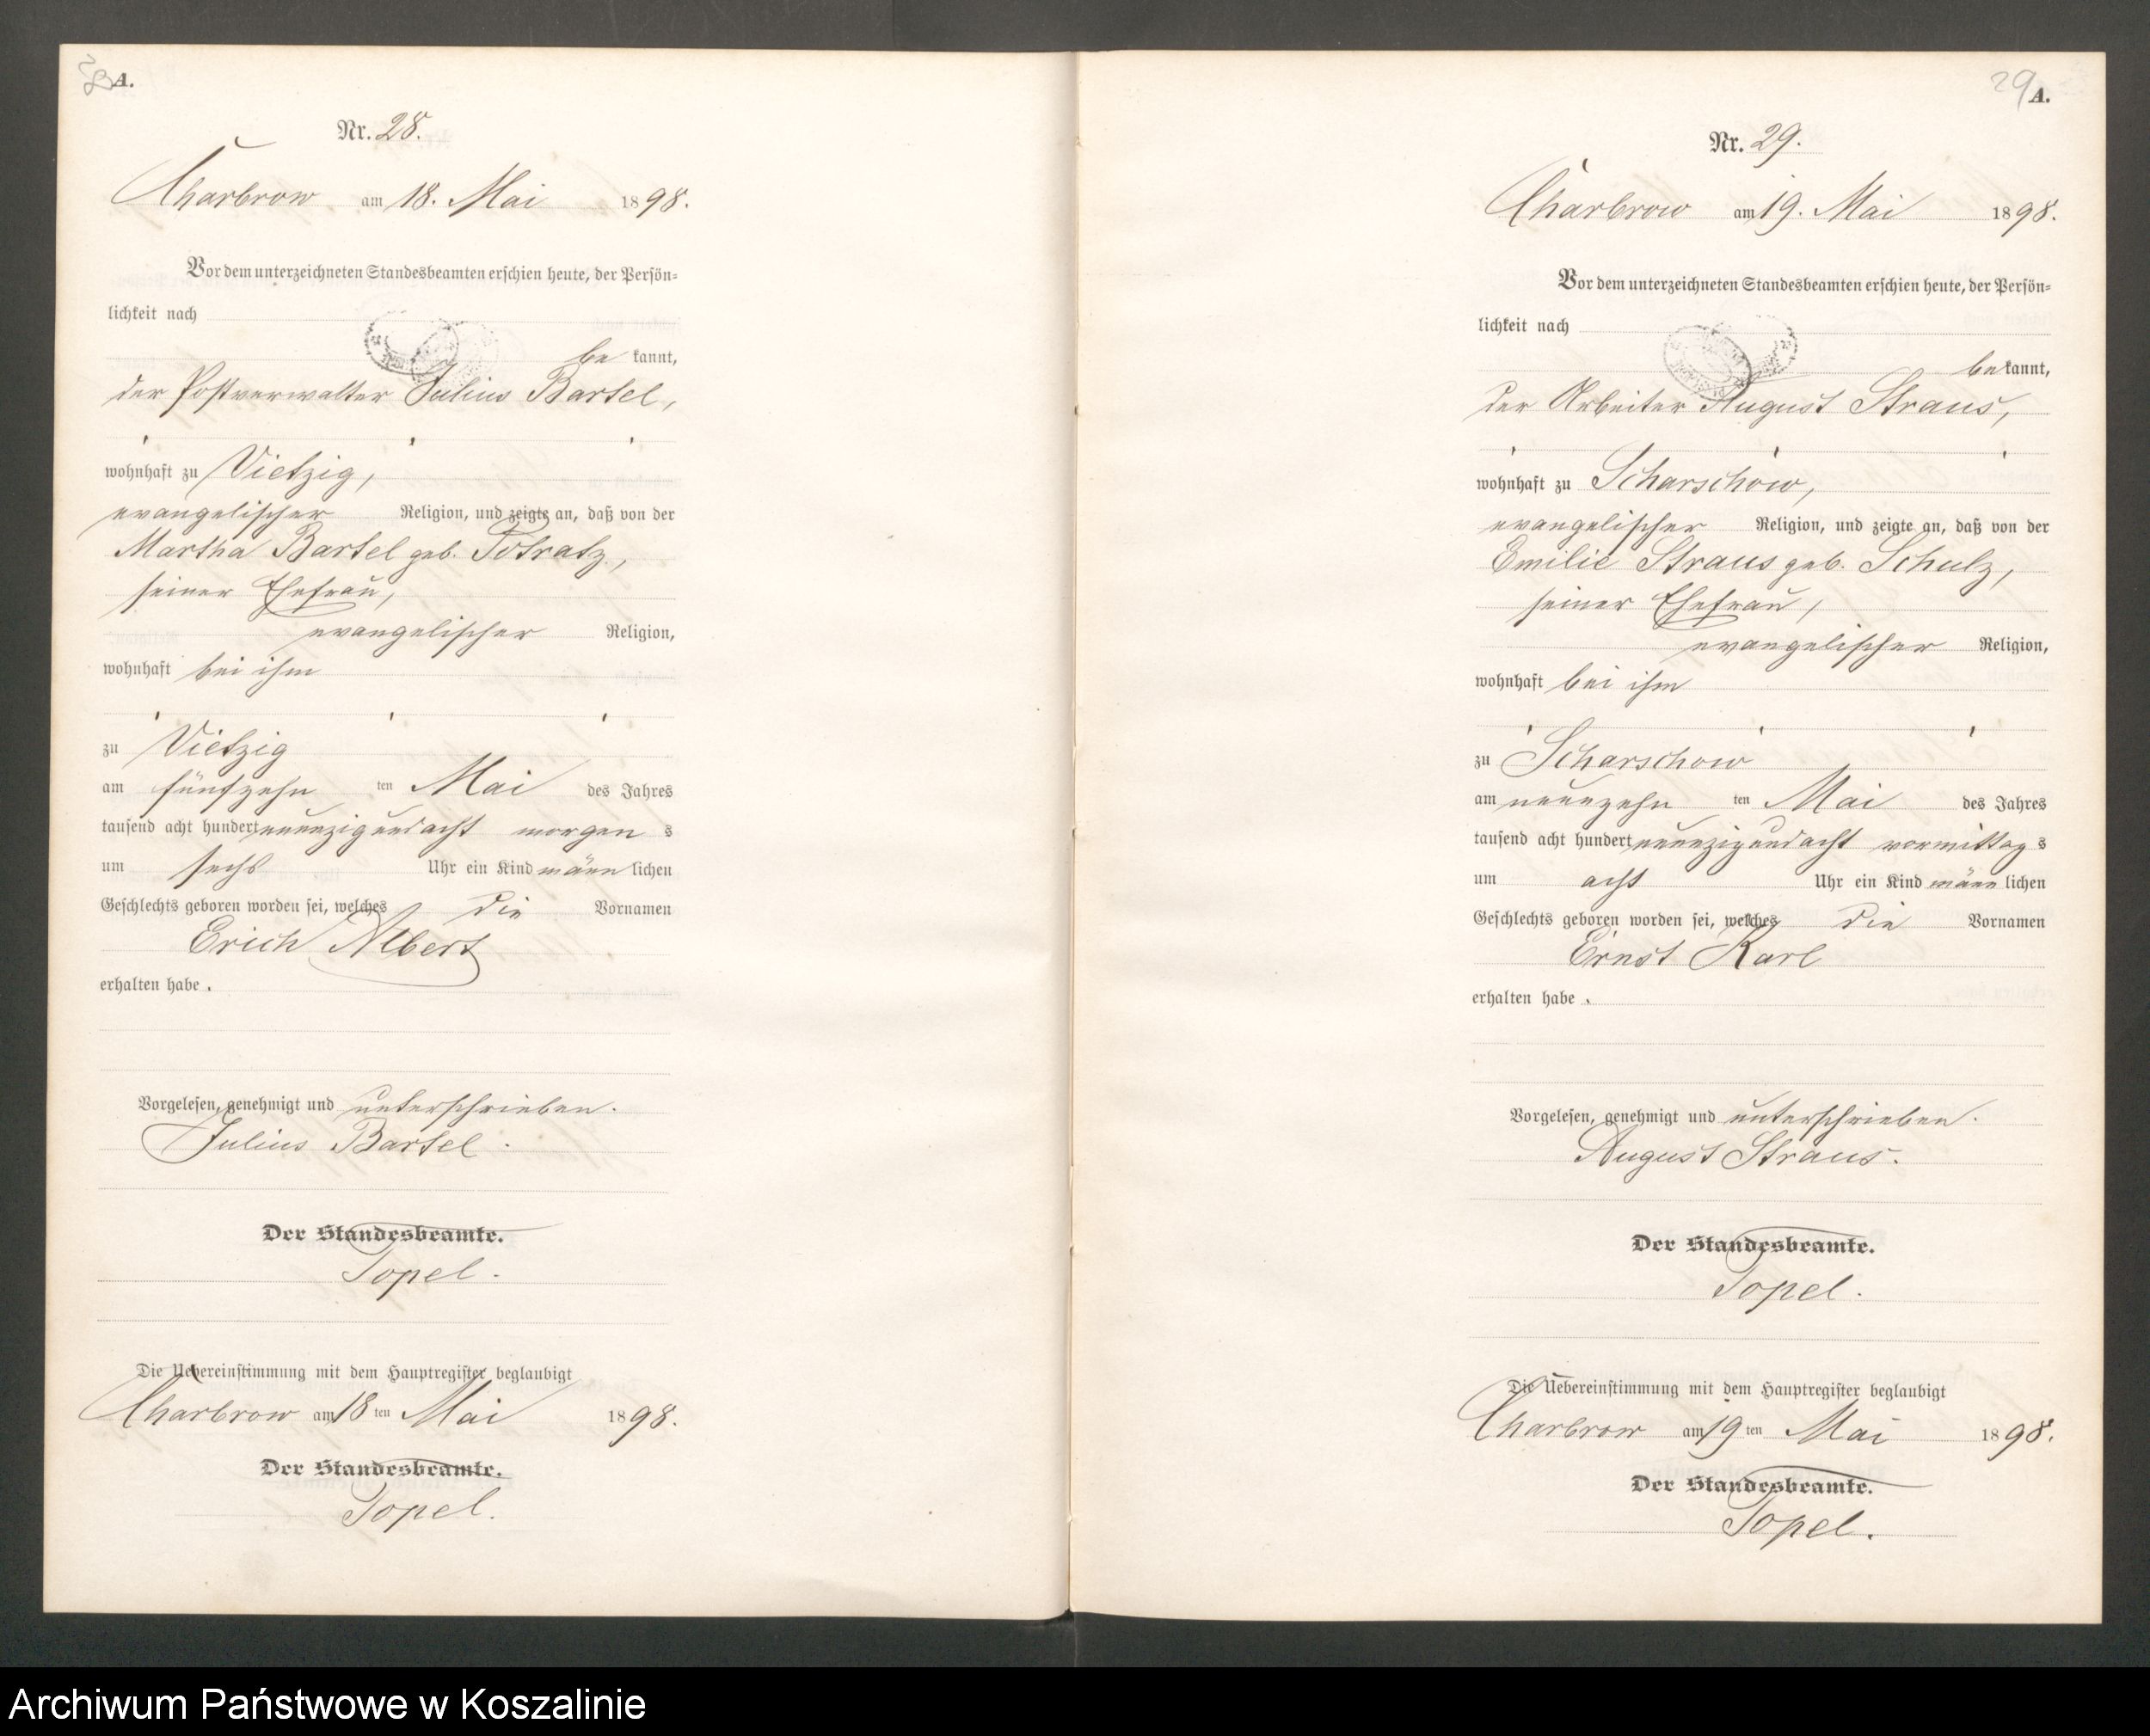 28
A.
Nr. 28.
Charbrow am 18. Mai 1898.
Vor dem unterzeichneten Standesbeamten erschien heute, der Persön-
lichkeit nach
be kannt,
der Postverwalter Julius Bartel,
wohnhaft zu Vietzig,
evangelischer Religion, und zeigte an, daß von der
Martha Bartel geb. Potratz,
seiner Ehefrau,
evangelischer Religion,
wohnhaft bei ihm
zu Vietzig
am fünfzehn ten Mai des Jahres
tausend acht hundert neunzig und acht morgen s
um sechs Uhr ein Kind männ lichen
Geschlechts geboren worden sei, welches die Vornamen
Erich Albert
erhalten habe.
Vorgelesen, genehmigt und unterschrieben.
Julius Bartel.
Der Standesbeamte.
Topel.
Die Uebereinstimmung mit dem Hauptregister beglaubigt
Charbrow am 18 ten Mai 1898.
Der Standesbeamte.
Topel.
29
A.
Nr. 29.
Charbrow am 19. Mai 1898.
Vor dem unterzeichneten Standesbeamten erschien heute, der Persön-
lichkeit nach
be kannt,
der Arbeiter August Straus,
wohnhaft zu Scharschow,
evangelischer Religion, und zeigte an, daß von der
Emilie Straus geb. Schulz,
seiner Ehefrau,
evangelischer Religion,
wohnhaft bei ihm
zu Scharschow
am neunzehn ten Mai des Jahres
tausend acht hundert neunzig und acht vormittag s
um acht Uhr ein Kind männ lichen
Geschlechts geboren worden sei, welches die Vornamen
Ernst Karl
erhalten habe.
Vorgelesen, genehmigt und unterschrieben.
August Straus.
Der Standesbeamte.
Topel.
Die Uebereinstimmung mit dem Hauptregister beglaubigt
Charbrow am 19 ten Mai 1898.
Der Standesbeamte.
Topel.
Archiwum Państwowe w Koszalinie